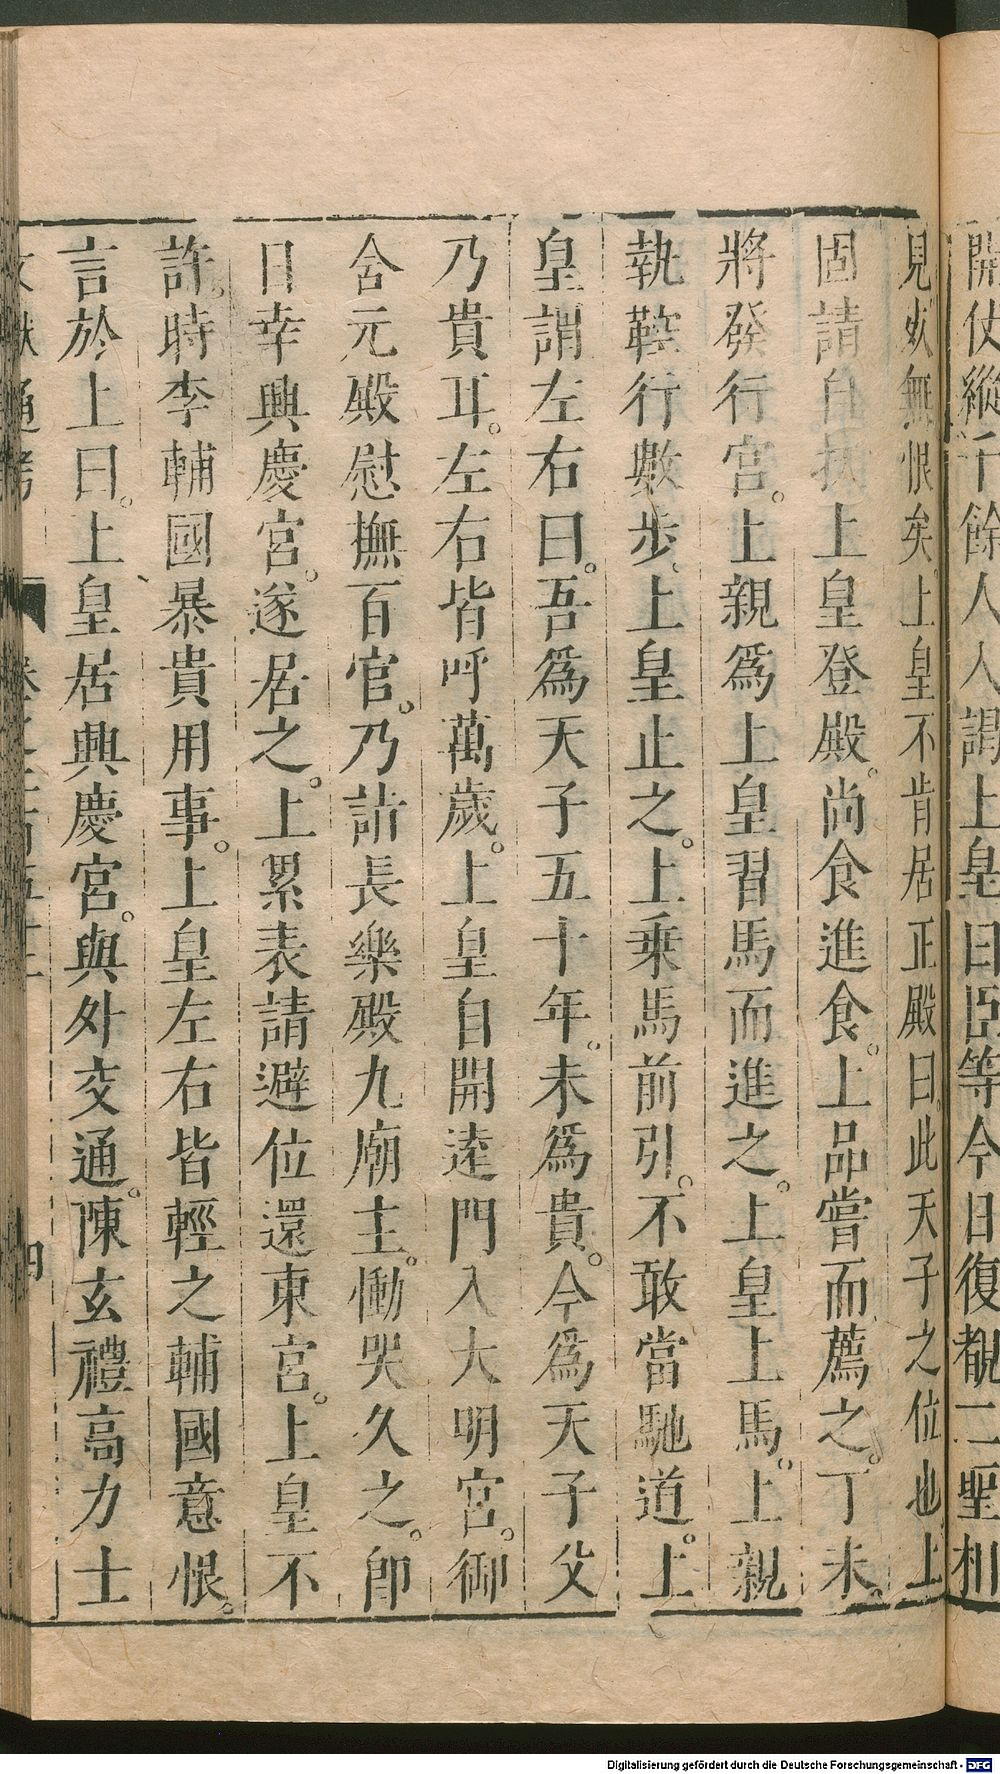 開仗縱千餘人入謁上皇曰臣等今日復覩二聖相
見妖無恨矣上皇不肯居正殿曰此天子之位也上
固請自扶上皇登殿尚食進食上品嘗而薦之丁未
將發行宮上親爲上皇習馬而進之上皇上馬上親
執鞚行數步上皇止之上乗馬前引不敢當馳道上
皇謂左右曰吾爲天子五十年未爲貴今爲天子父
乃貴耳左右皆呼萬歲上皇自開逺門入大明宮御
含元殿慰撫百官乃詣長樂殿九廟主慟哭久之卽
日幸興慶宮遂居之上累表請避位還東宮上皇不
許時李輔國暴貴用事上皇左右皆輕之輔國意恨
言於上曰上皇居興慶宮與外交通陳玄禮高力士
文獻通考
四
Digitalisierung gefördert durch die Deutsche Forschungsgemeinschaft - DFG